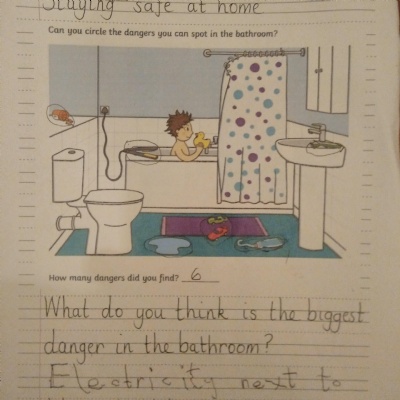 Staying safe at home
Can you circle the dangers you can spot in the bathroom?
How many dangers did you find? 6
What do you think is the biggest
danger in the bathroom?
Electricity next to